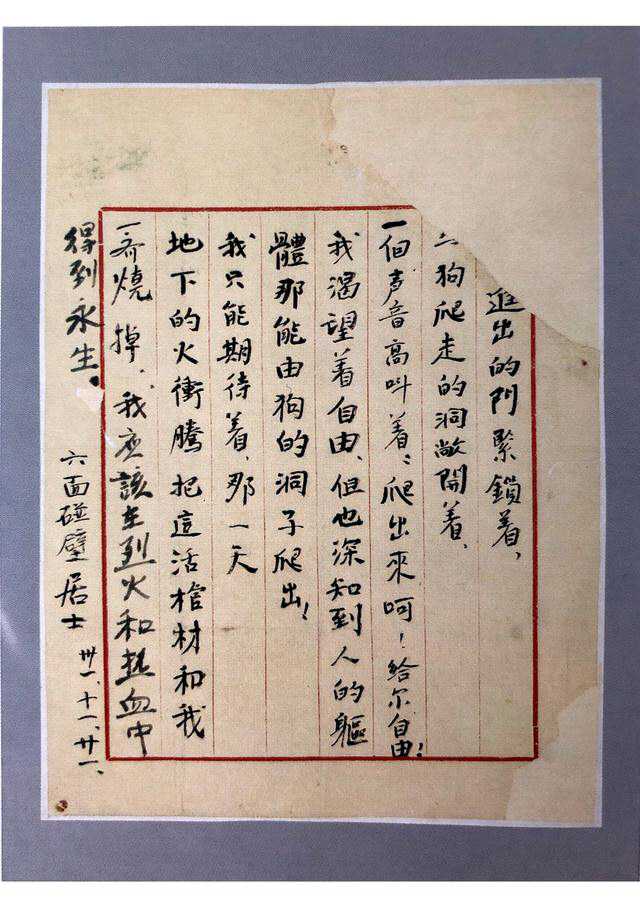 進出的門緊鎖着、
狗爬走的洞敞開着、
一個声音高叫着：爬出來呵！給尔自由！
我渴望着自由、但也深知到人的軀
體那能由狗的洞子爬出！
我只能期待着、那一天
地下的火衝騰把這活棺材和我
一齐燒掉、我应該在烈火和热血中
得到永生。
六面碰壁居士 卅一、十一、廿一、